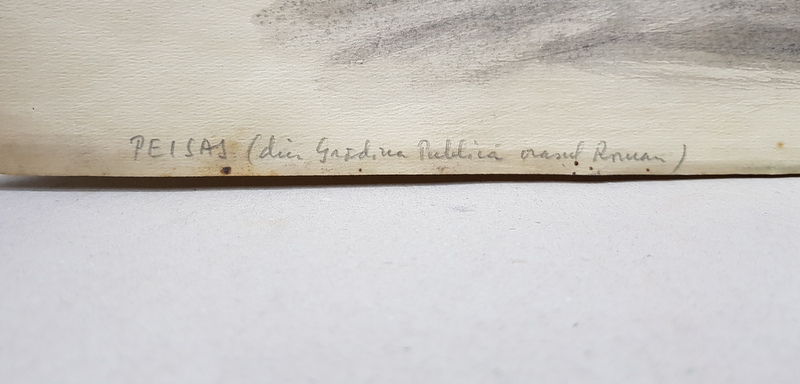 PEISAJ (din Grădina Publică orașul Roman)